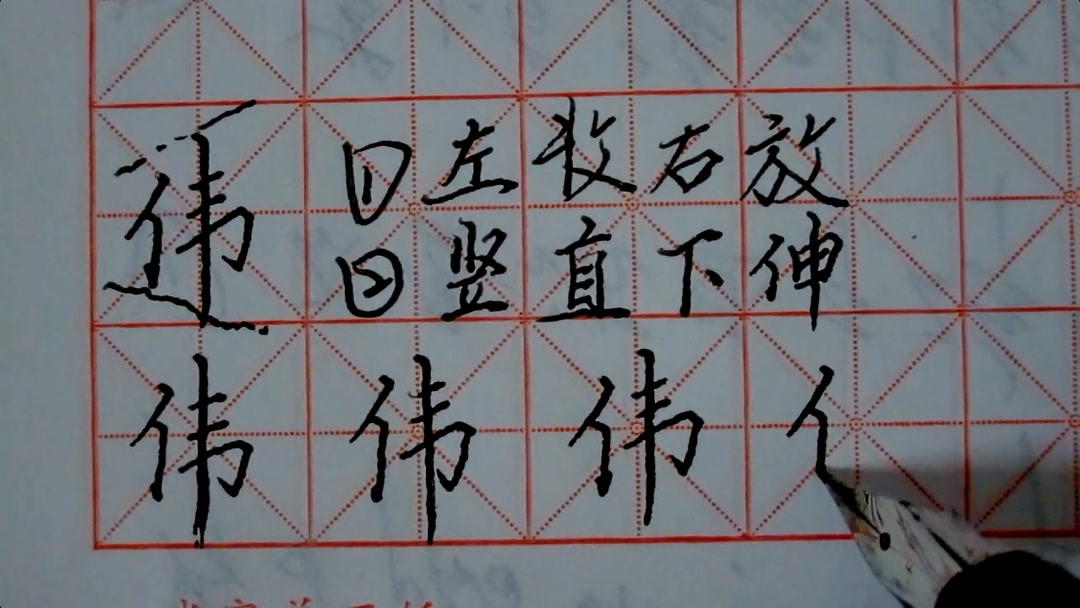 伟 ①左收右放
②竖直下伸
伟伟伟亻